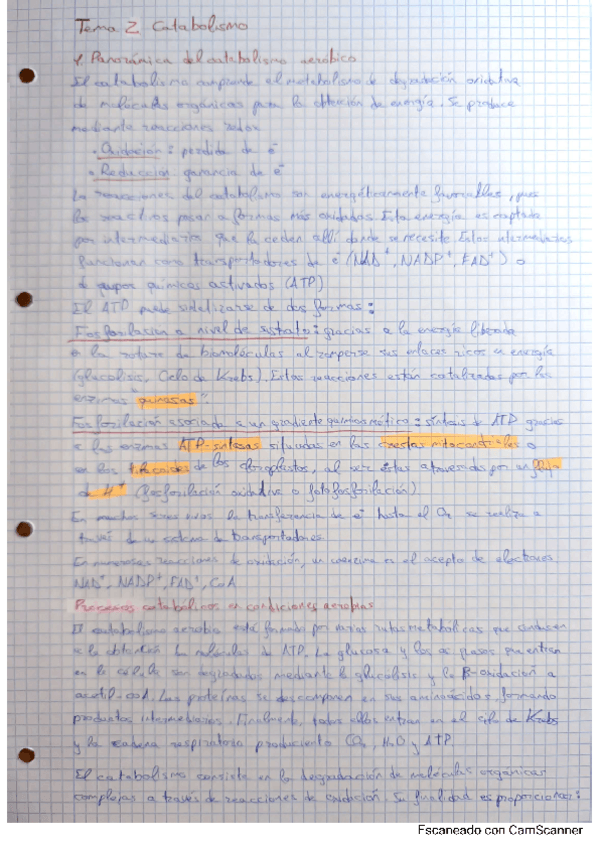 Tema 2 Catabolismo
1. Panorámica del catabolismo aeróbico
El catabolismo comprende el metabolismo de degradación oxidativa
de moléculas orgánicas para la obtención de energía. Se produce
mediante reacciones redox
• Oxidación: perdida de e-
• Reducción ganancia de e-
Las reacciones del catabolismo son energéticamente favorables, pues
los reactivos pasan a formas más oxidadas. Esta energía es captada
por intermediarios que la ceden allí donde se necesite. Estos intermediarios
funcionan como transportadores de e- (NAD+, NADP+, FAD+) o
de grupos químicos activados (ATP)
El ATP puede sintetizarse de dos formas:
Fosforilación a nivel de sustrato: gracias a la energía liberada
a la rotura de biomoléculas al romperse sus enlaces ricos en energía
(glucolisis, Ciclo de Krebs). Estas reacciones están catalizadas por las
enzimas "quinasas".
Fosforilación asociada a un gradiente quimiosmótico: síntesis de ATP gracias
a las enzimas ATP-sintasas situadas en las crestas mitocondriales o
en los tilacoides de los cloroplastos, al ser éstas atravesadas por un flujo
de H+ (fosforilación oxidativa o fotofosforilación)
En muchos seres vivos la transferencia de e- hasta el O2 se realiza a
través de una cadena de transportadores
En numerosas reacciones de oxidación, un coenzima es el aceptor de electrones
NAD+, NADP+, FAD+, CoA
Procesos catabólicos en condiciones aerobias
El catabolismo aerobio está formado por varias rutas metabólicas que conducen
a la obtención de moléculas de ATP. La glucosa y los ac. grasos que entran
en la célula son degradados mediante la glucolisis y la β-oxidación a
acetil-coA. Las proteínas se descomponen en sus aminoácidos, formando
productos intermediarios. Finalmente, todos ellos entran en el ciclo de Krebs
y la cadena respiratoria produciento CO2, H2O y ATP
El catabolismo consiste en la degradación de moléculas orgánicas
complejas a través de reacciones de oxidación. Su finalidad es proporcionar:
Escaneado con CamScanner